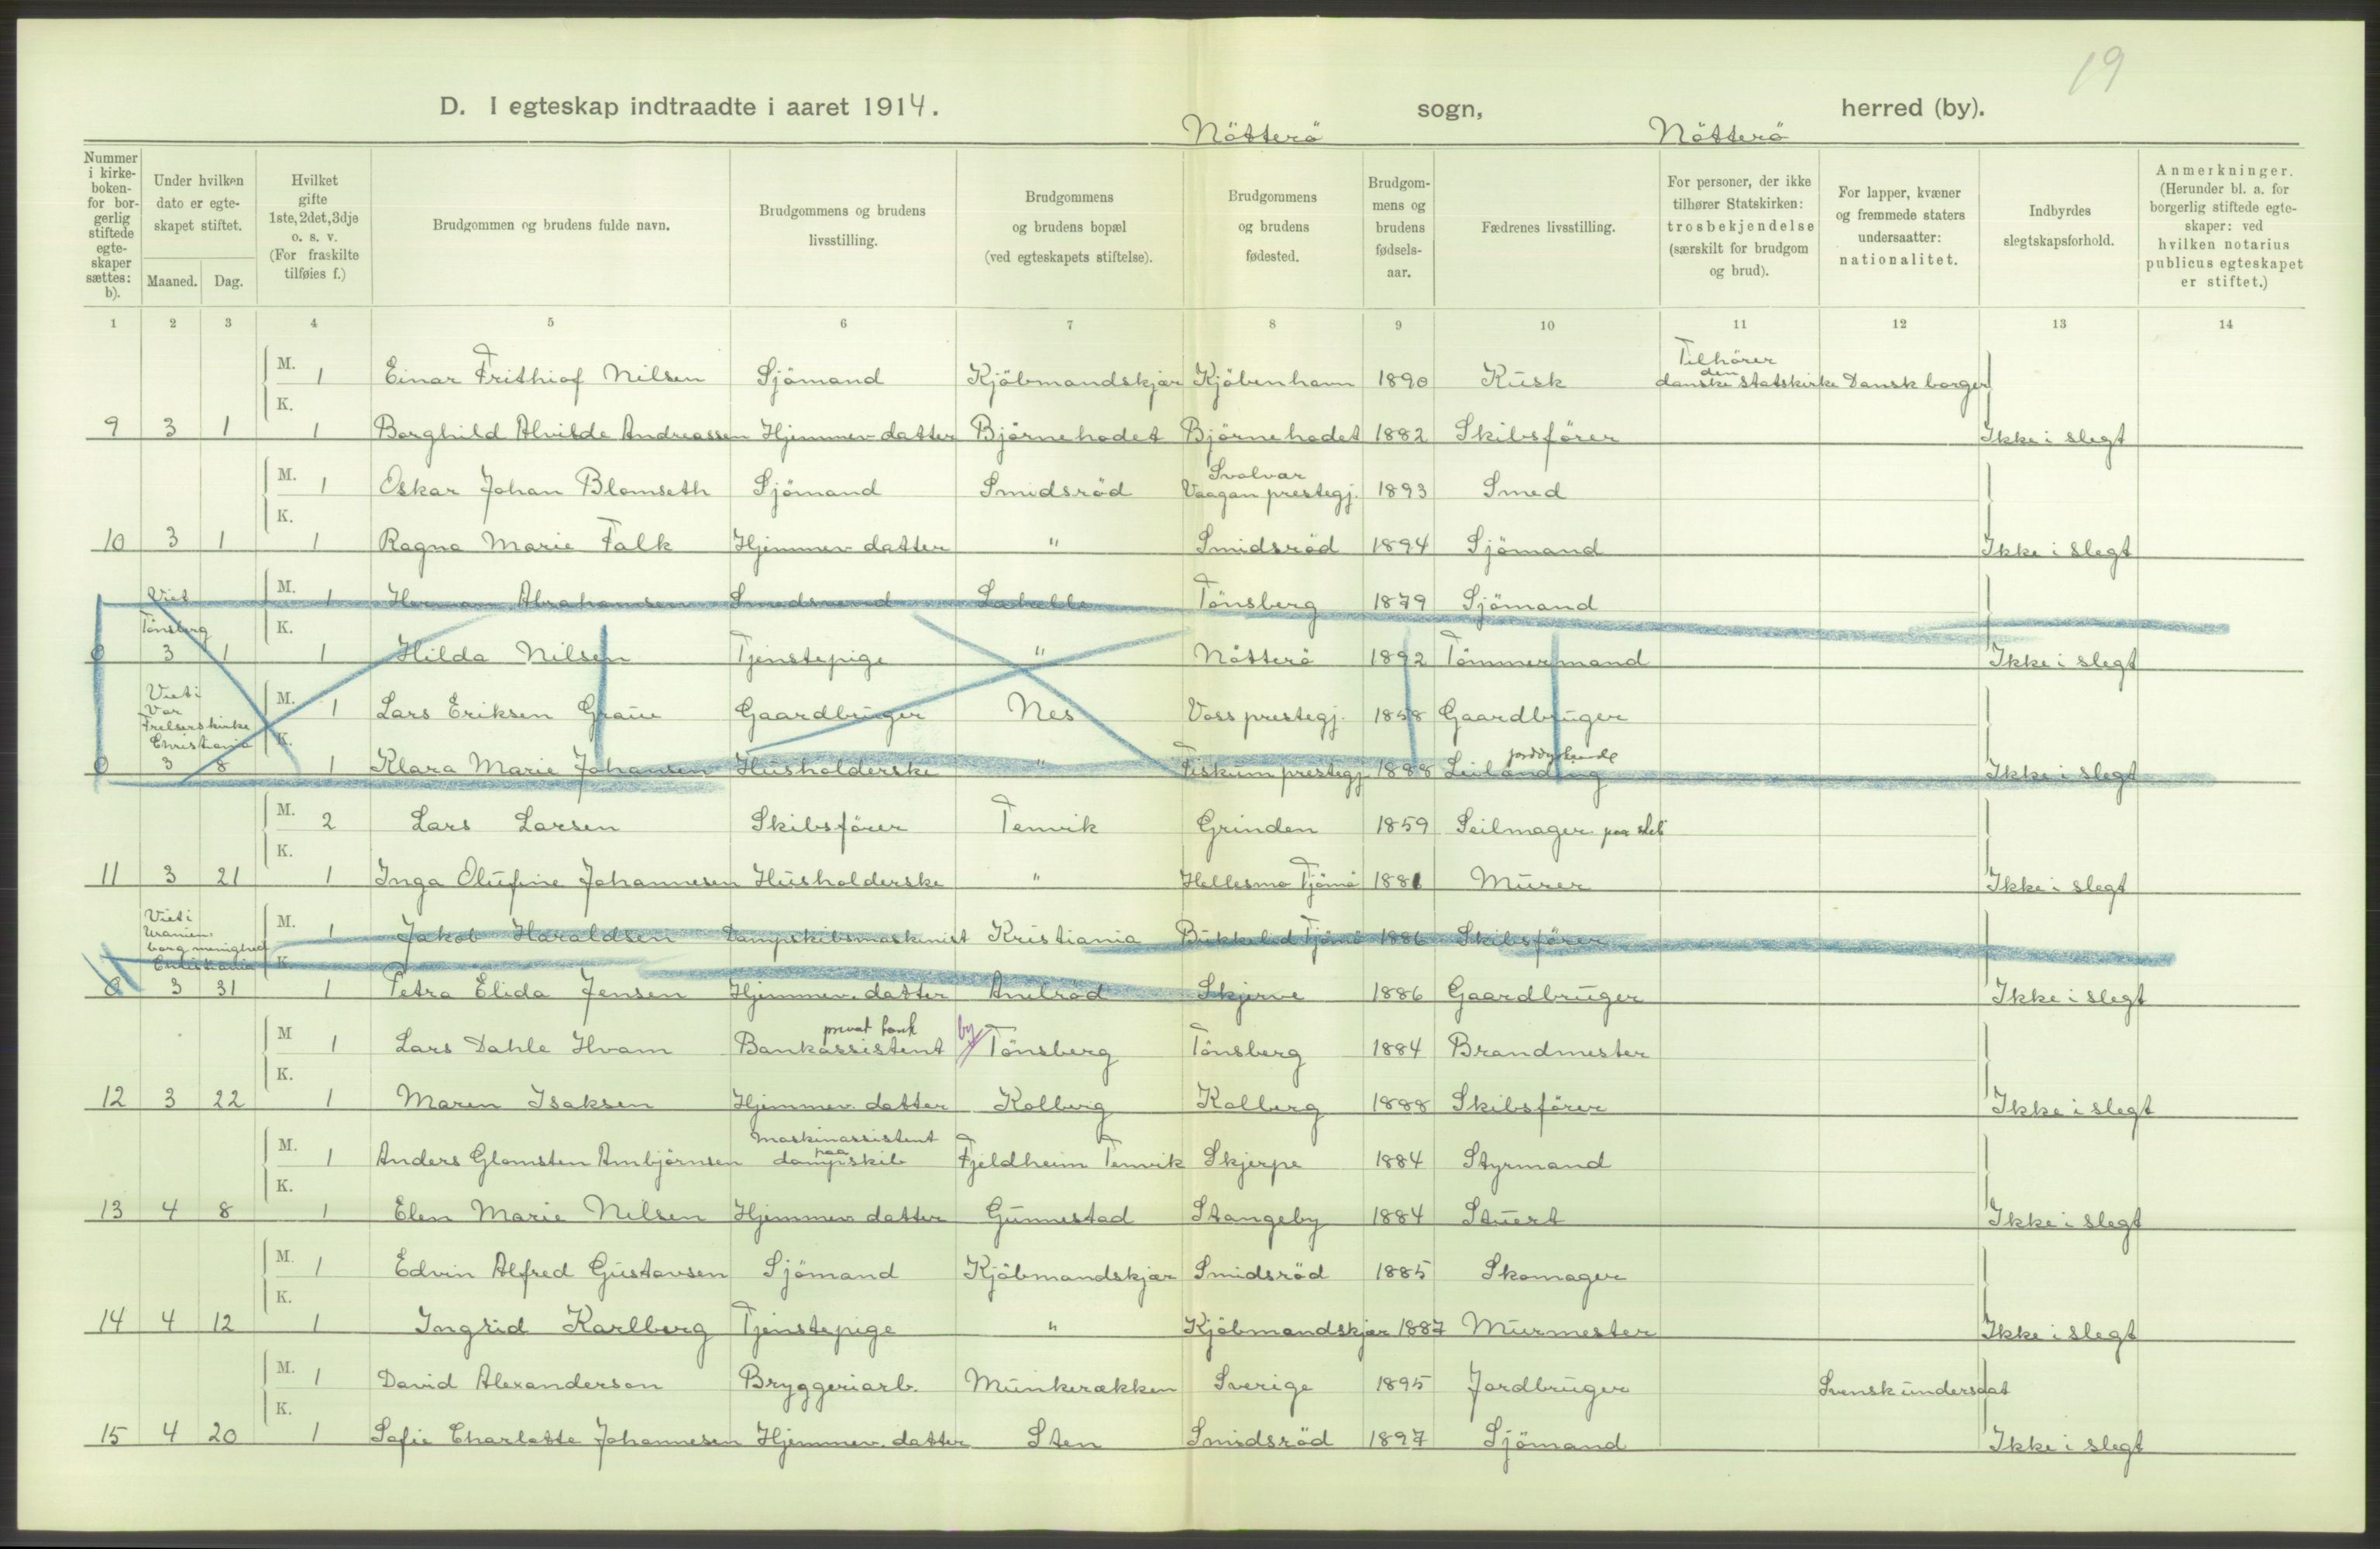 19
D. I egteskap indtraadte i aaret 1914. Nötterö sogn, Nötterö herred (by).
Nummer i kirke-boken- for bor-gerlig stiftede egte-skaper sættes: b).
Under hvilken dato er egte-skapet stiftet.
Maaned. Dag.
Hvilket gifte 1ste, 2det, 3dje o. s. v. (For fraskilte tilføies f.)
Brudgommen og brudens fulde navn.
Brudgommens og brudens livsstilling.
Brudgommens og brudens bopæl (ved egteskapets stiftelse).
Brudgommens og brudens fødested.
Brudgom-mens og brudens fødsels-aar.
Fædrenes livsstilling.
For personer, der ikke tilhører Statskirken: trosbekjendelse (særskilt for brudgom og brud).
For lapper, kvæner og fremmede staters undersaatter: nationalitet.
Indbyrdes slegtskapsforhold.
Anmerkninger. (Herunder bl. a. for borgerlig stiftede egte-skaper: ved hvilken notarius publicus egteskapet er stiftet.)
1 2 3 4 5 6 7 8 9 10 11 12 13 14
M. 1 Einar Frithiof Nilsen Sjömand Kjöbmandskjær Kjöbenhavn 1890 Kusk Tilhörer den danske statskirke Dansk borger
K.
9 3 1 1 Borghild Alvilde Andreassen Hjemmev. datter Björnehodet Björnehodet 1882 Skibsförer Ikke i slegt
M. 1 Oskar Johan Blomseth Sjömand Smidsröd Svolvar Vaagan prestegj. 1893 Smed
K.
10 3 1 1 Ragna Marie Falk Hjemmev. datter " Smidsröd 1894 Sjömand Ikke i slegt
Viet Tönsberg
M. 1 Herman Abrahamsen Smedsvend Tönsberg 1879 Sjömand
K.
0 3 1 1 Hilda Nilsen Tjenstepige " Nötterö 1892 Tömmermand Ikke i slegt
Viet i Vor Frelserskirke Christiania
M. 1 Lars Eriksen Graue Gaardbruger Nes Voss prestegj. 1858 Gaardbruger
K.
0 3 8 1 Klara Marie Johansen Husholderske " Fiskum prestegj. 1888 Leilænding jorddyrkende Ikke i slegt
M. 2 Lars Larsen Skibsförer Tenvik Grinden 1859 Seilmager paa sted
K.
11 3 21 1 Inga Olufine Johannesen Husholderske " Hellesmo Tjömö 1881 Murer Ikke i slegt
Viet i Uranien-borg menighed Christiania
M. 1 Jakob Haraldsen Dampskibsmaskinist Kristiania Bukkelid Tjömö 1886 Skibsförer
K.
0 3 31 1 Petra Elida Jensen Hjemmev. datter Arnlröd Skjerve 1886 Gaardbruger Ikke i slegt
M 1 Lars Dahle Hvam Bankassistent privat bank by Tönsberg Tönsberg 1884 Brandmester
K.
12 3 22 1 Maren Isaksen Hjemmev. datter Kolberg Kolberg 1888 Skibsförer Ikke i slegt
M. 1 Anders Glomsten Arnbjörnsen Maskinassistent paa dampskib Fjeldheim Tenvik Skjerpe 1884 Styrmand
K.
13 4 8 1 Elen Marie Nilsen Hjemmev. datter Gunnestad Stangeby 1884 Stuert Ikke i slegt
M. 1 Edvin Alfred Gustavsen Sjömand Kjöbmandskjær Smidsröd 1885 Skomager
K.
14 4 12 1 Ingrid Karlberg Tjenstepige " Kjöbmandskjær 1887 Murmester Ikke i slegt
M. 1 David Alexanderson Bryggeriarb. Munkerækken Sverige 1895 Jordbruger Svensk undersaat
K.
15 4 20 1 Sofie Charlotte Johannesen Hjemmev. datter Sten Smidsröd 1897 Sjömand Ikke i slegt